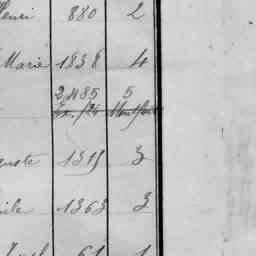 Henri 880 2
Marie 1838 4
2485 5
uste 1315 3
ile 1363 3
61 1